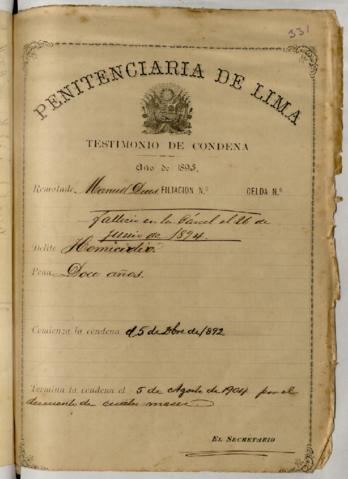 331
PENITENCIARIA DE LIMA
TESTIMONIO DE CONDENA
Año de 1893.
Rematado Manuel FILIACION N.º CELDA N.º
Falleció en la Cárcel el 26 de
Junio de 1894.
Delito Homicidio.
Pena Doce años.
Comienza la condena el 5 de Dbre de 1892
Termina la condena el 5 de Agosto de 1904 por el
descuento de cuatro meses.
EL SECRETARIO